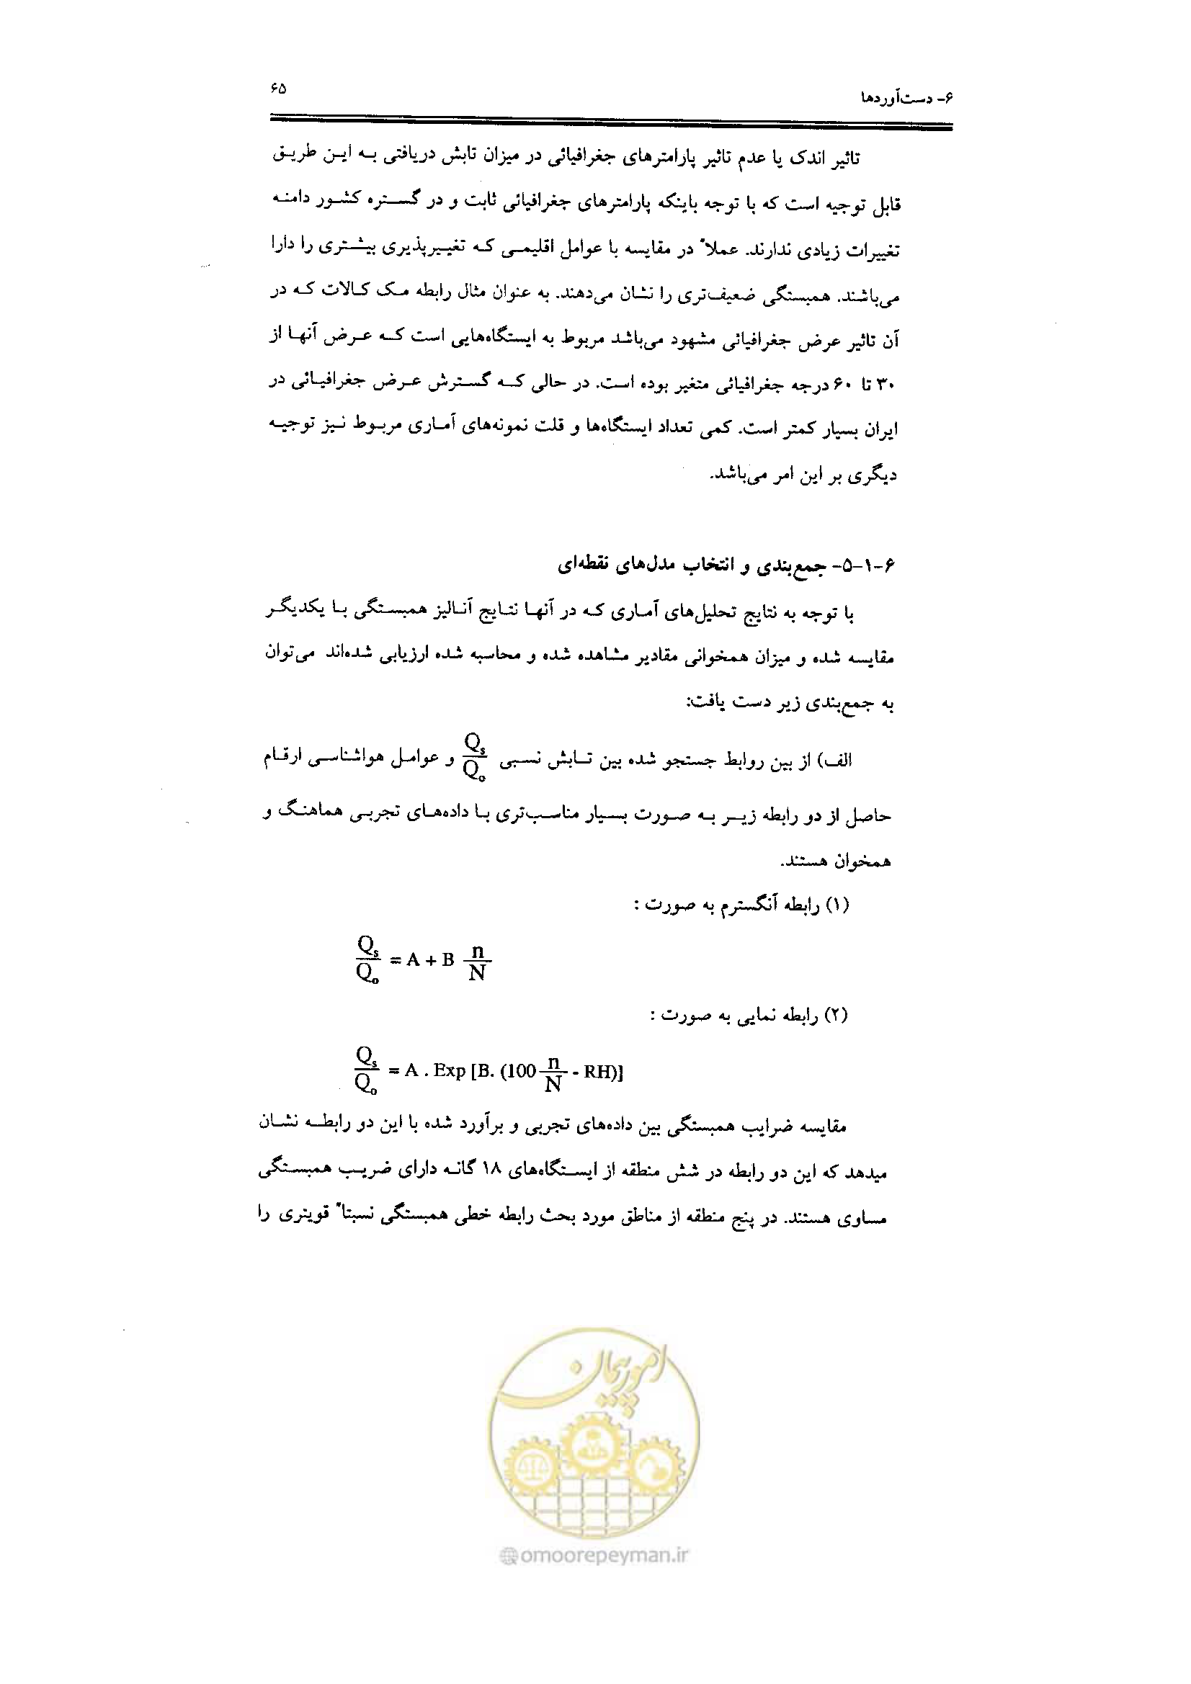 ۶- دست‌آوردها
۶۵
تاثیر اندک یا عدم تاثیر پارامترهای جغرافیائی در میزان تابش دریافتی به این طریق
قابل توجیه است که با توجه باینکه پارامترهای جغرافیائی ثابت و در گستره کشور دامنه
تغییرات زیادی ندارند. عملاً در مقایسه با عوامل اقلیمی که تغییرپذیری بیشتری را دارا
می‌باشند. همبستگی ضعیف‌تری را نشان می‌دهند. به عنوان مثال رابطه مک کالات که در
آن تاثیر عرض جغرافیائی مشهود می‌باشد مربوط به ایستگاه‌هایی است که عرض آنها از
۳۰ تا ۶۰ درجه جغرافیائی متغیر بوده است. در حالی که گسترش عرض جغرافیائی در
ایران بسیار کمتر است. کمی تعداد ایستگاه‌ها و قلت نمونه‌های آماری مربوط نیز توجیه
دیگری بر این امر می‌باشد.
۶-۱-۵- جمع‌بندی و انتخاب مدل‌های نقطه‌ای
با توجه به نتایج تحلیل‌های آماری که در آنها نتایج آنالیز همبستگی با یکدیگر
مقایسه شده و میزان همخوانی مقادیر مشاهده شده و محاسبه شده ارزیابی شده‌اند می‌توان
به جمع‌بندی زیر دست یافت:
الف) از بین روابط جستجو شده بین تابش نسبی Qs/Qo و عوامل هواشناسی ارقام
حاصل از دو رابطه زیر به صورت بسیار مناسب‌تری با داده‌های تجربی هماهنگ و
همخوان هستند.
(۱) رابطه آنگسترم به صورت :
Qs/Qo = A + B n/N
(۲) رابطه نمایی به صورت :
Qs/Qo = A . Exp [B. (100 n/N - RH)]
مقایسه ضرایب همبستگی بین داده‌های تجربی و برآورد شده با این دو رابطه نشان
میدهد که این دو رابطه در شش منطقه از ایستگاه‌های ۱۸ گانه دارای ضریب همبستگی
مساوی هستند. در پنج منطقه از مناطق مورد بحث رابطه خطی همبستگی نسبتاً قویتری را
امور پیمان
@omoorepeyman.ir